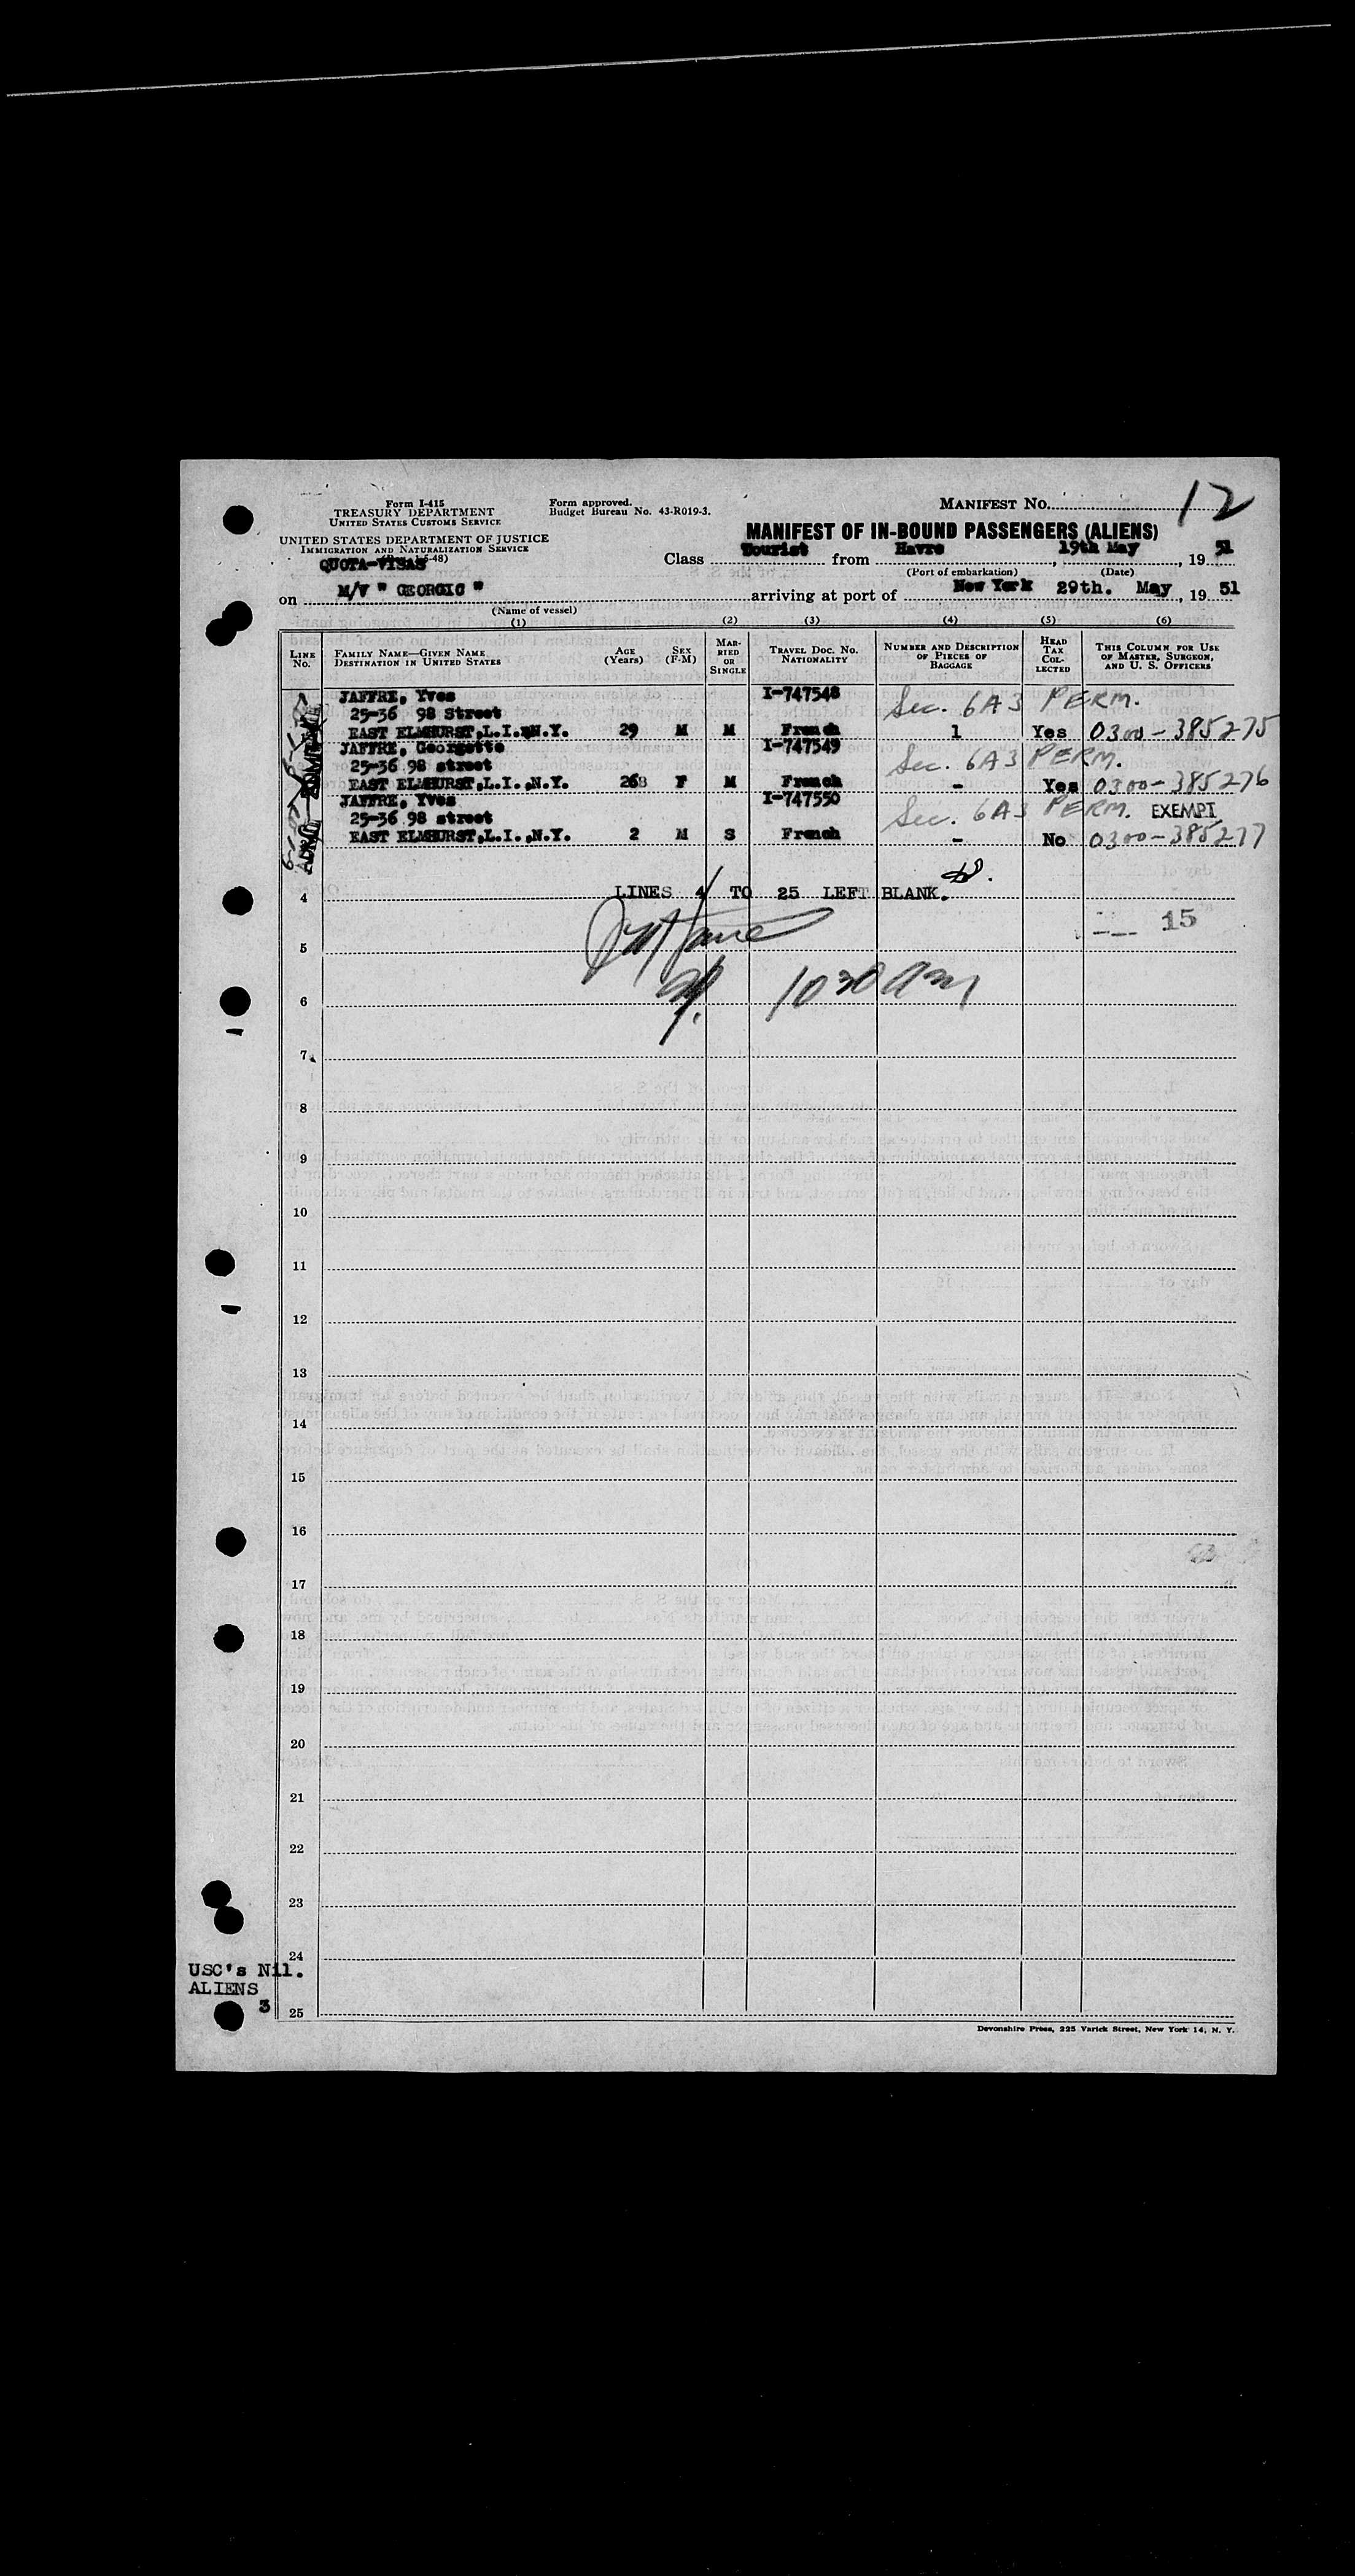 Form I-415
TREASURY DEPARTMENT
UNITED STATES CUSTOMS SERVICE
UNITED STATES DEPARTMENT OF JUSTICE
IMMIGRATION AND NATURALIZATION SERVICE
QUOTA-VISAS 5-48)
Form approved.
Budget Bureau No. 43-R019-3.
MANIFEST No. 12
MANIFEST OF IN-BOUND PASSENGERS (ALIENS)
Class Tourist from Havre, 19th May, 19 51
(Port of embarkation) (Date)
on M/V " GEORGIC " arriving at port of New York 29th. May, 19 51
(Name of vessel)
(1) (2) (3) (4) (5) (6)
LINE No. FAMILY NAME—GIVEN NAME DESTINATION IN UNITED STATES AGE (Years) SEX (F-M) MARRIED OR SINGLE TRAVEL DOC. No. NATIONALITY NUMBER AND DESCRIPTION OF PIECES OF BAGGAGE HEAD TAX COLLECTED THIS COLUMN FOR USE OF MASTER, SURGEON, AND U. S. OFFICERS
JAFFRE, Yves I-747548 Sec. 6A3 PERM.
25-36 98 Street
EAST ELMHURST,L.I.,N.Y. 29 M M French 1 Yes 0300-385275
JAFFRE, Georgette I-747549 Sec. 6A3 PERM.
25-36 98 street
EAST ELMHURST,L.I.,N.Y. 268 F M French - Yes 0300-385276
JAFFRE, Yves I-747550 Sec. 6A3 PERM. EXEMPT
25-36 98 street
EAST ELMHURST,L.I.,N.Y. 2 M S French - No 0300-385277
4 LINES 4 TO 25 LEFT BLANK.
15
5
6 10 30 AM
7
8
9
10
11
12
13
14
15
16
17
18
19
20
21
22
23
24
USC's Nil.
ALIENS 3
25
Devonshire Press, 225 Varick Street, New York 14, N. Y.